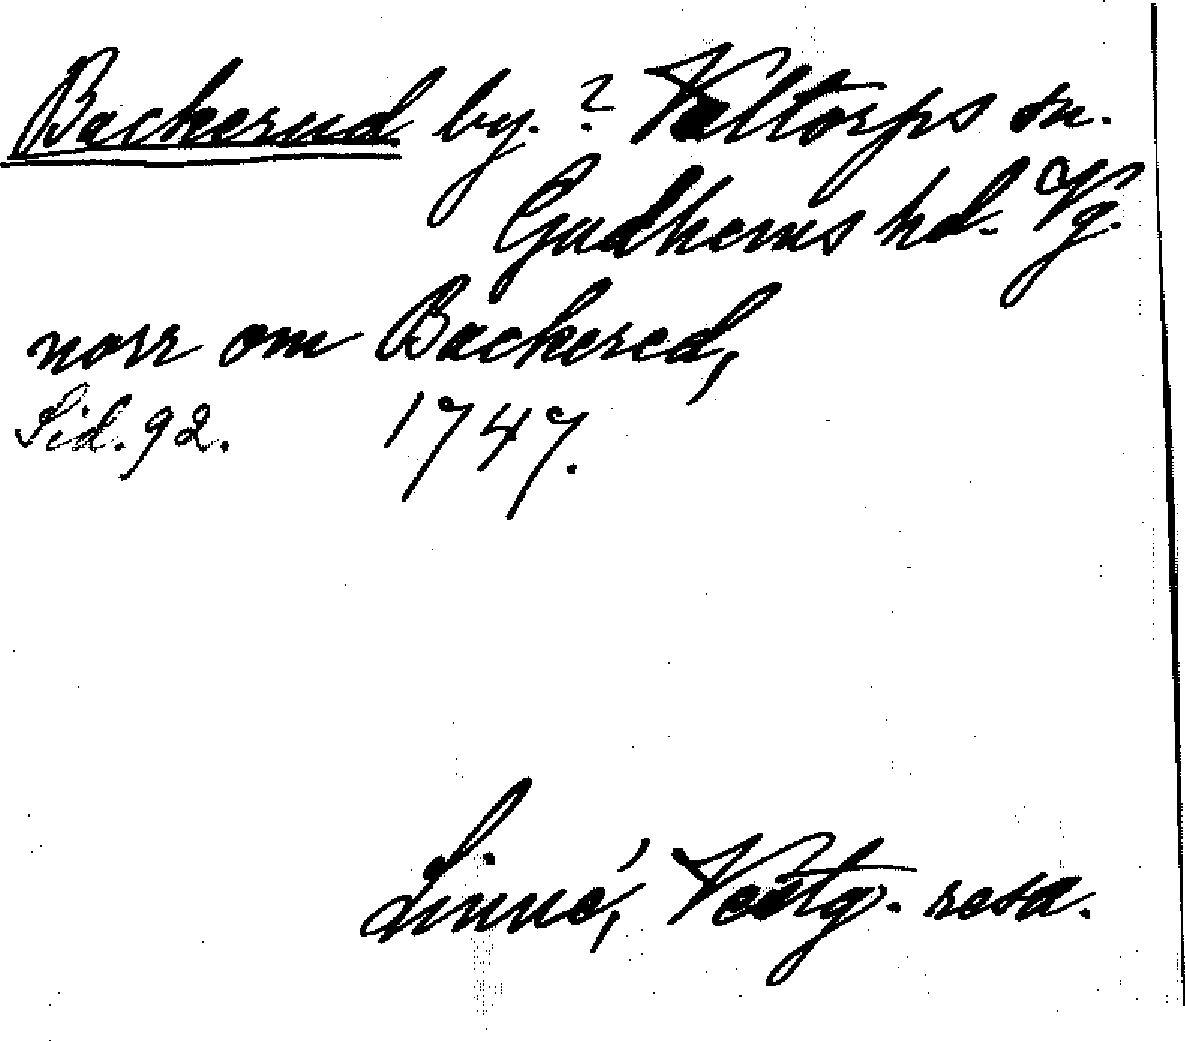 Backerud by. ? Valtorps sn.
Gudhems hd. Vg.
norr om Backered,
Sid. 92. 1747.
Linné, Västg. resa.